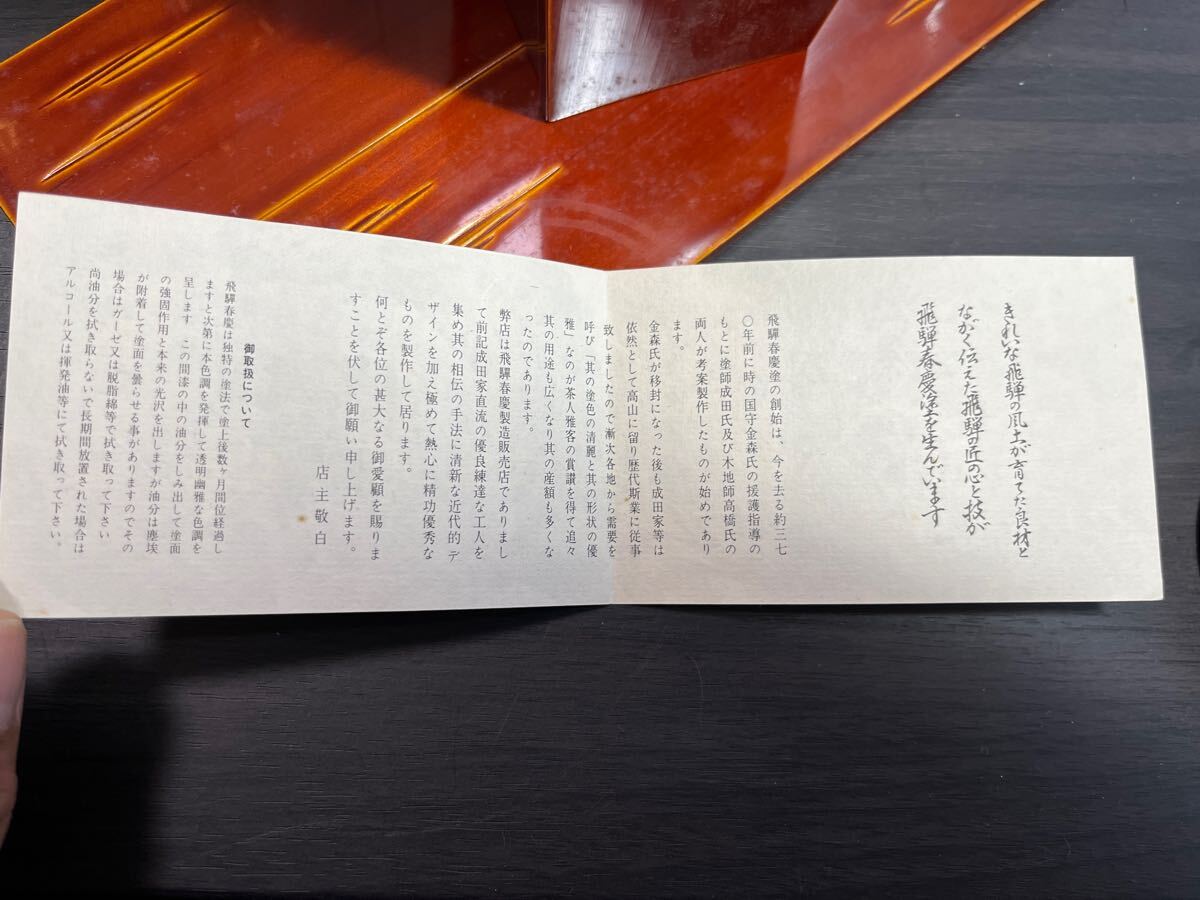 きれいな飛騨の風土が育てた良材と
ながく伝えた飛騨の匠の心と技が
飛騨春慶塗を生んでいます
飛驒春慶塗の創始は、今を去る約三七
〇年前に時の国守金森氏の援護指導の
もとに塗師成田氏及び木地師高橋氏の
両人が考案製作したものが始めであり
ます。
金森氏が移封になった後も成田家等は
依然として高山に留り歴代斯業に従事
致しましたので漸次各地から需要を
呼び「其の塗色の清麗と其の形状の優
雅」なのが茶人雅客の賞讃を得て追々
其の用途も広くなり其の産額も多くな
ったのであります。
弊店は飛驒春慶製造販売店でありまし
て前記成田家直流の優良練達な工人を
集め其の相伝の手法に清新な近代的デ
ザインを加え極めて熱心に精功優秀な
ものを製作して居ります。
何とぞ各位の甚大なる御愛顧を賜りま
すことを伏して御願い申し上げます。
店主敬白
御取扱について
飛驒春慶は独特の塗法で塗上後数ヶ月間位経過し
ますと次第に本色調を発揮して透明幽雅な色調を
呈します この間漆の中の油分をしみ出して塗面
の強固作用と本来の光沢を出しますが油分は塵埃
が附着して塗面を曇らせる事がありますのでその
場合はガーゼ又は脱脂綿等で拭き取って下さい
尚油分を拭き取らないで長期間放置された場合は
アルコール又は揮発油等にて拭き取って下さい。